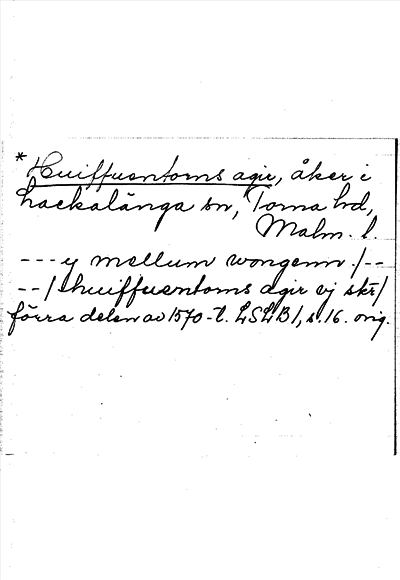 * Huiffuentoms agir, åker i
Lackalänga sn, Torna hd,
Malm. l.
--- y mellum wongenn /--
--/ huiffuentoms agir vj skr/
förra delen av 1570-t. LSLB1, s. 16. orig.